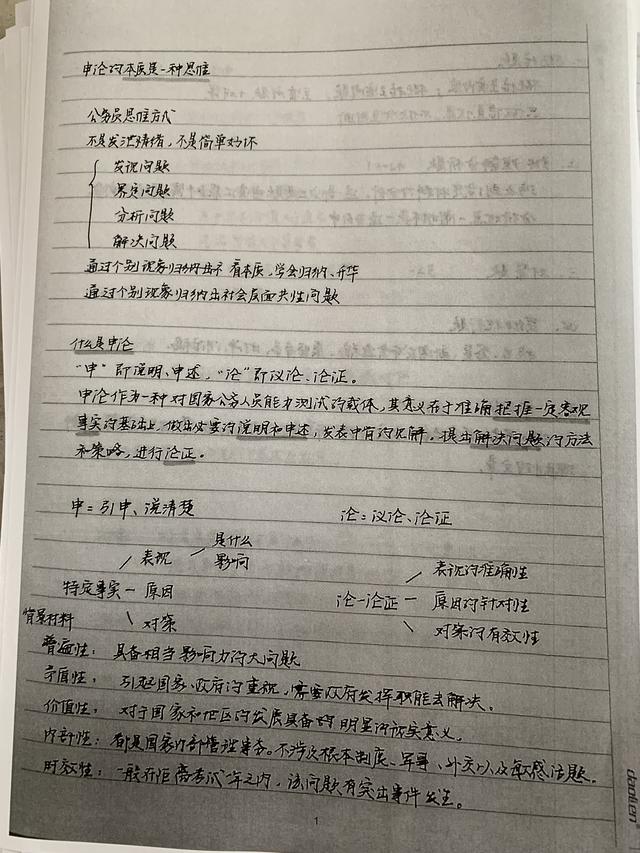 申论的本质是一种思维
公务员思维方式
不是发泄情绪，不是简单好坏
发现问题
界定问题
分析问题
解决问题
通过个别现象归纳出 看本质，学会归纳、升华
通过个别现象归纳出社会反面共性问题
什么是申论
"申"即说明、申述，"论"即议论、论证。
申论作为一种对国家公务人员能力测试的载体，其意义在于准确把握一定客观
事实的基础上，做出必要的说明和申述，发表中肯的见解，提出解决问题的方法
和策略，进行论证。
申=引申、说清楚 论=议论、论证
是什么
表现 影响 表现的准确性
特定事实 原因 论-论证 原因的针对性
背景材料 对策 对策的有效性
普遍性：具备相当影响力的大问题
矛盾性：引起国家、政府的重视，需要政府发挥职能去解决。
价值性：对于国家和地区的发展具备的明显的现实意义。
内部性：都是国家内部管理事务。不涉及根本制度、军事、外交以及敏感话题。
时效性：一般在距离考试一年之内，该问题有突出事件发生。
1